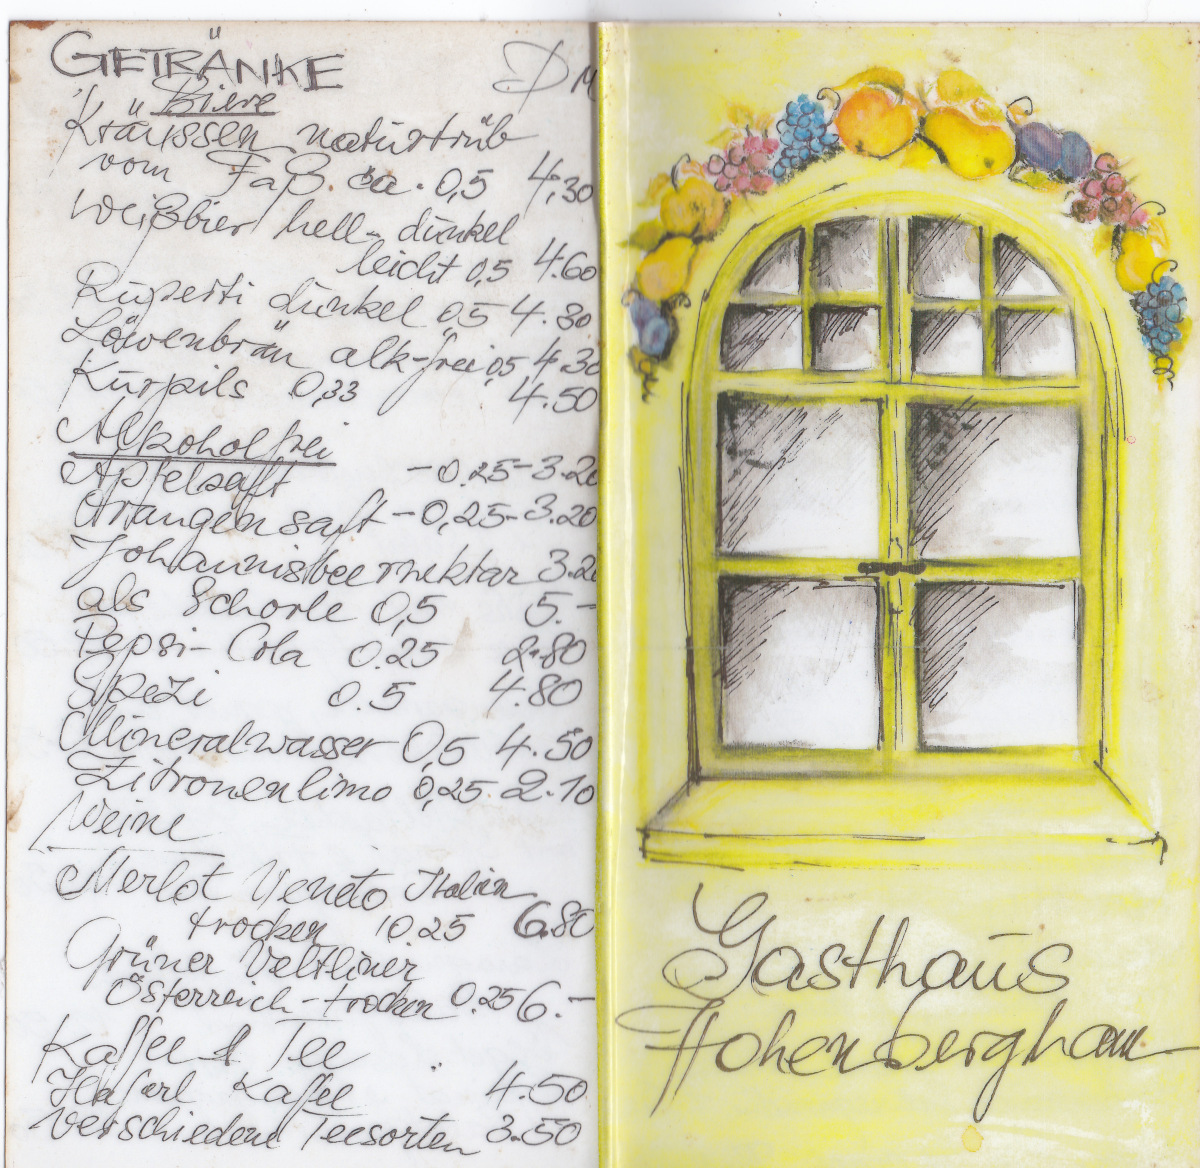 GETRÄNKE DM
Biere
Kräussen naturtrüb
vom Faß. ca. 0,5 4,30
Weißbier hell- dunkel
leicht 0,5 4.60
Ruperti dunkel 0,5 4.30
Löwenbräu alk-frei 0,5 4.30
Kurpils 0,33 4.50
Alkoholfrei
Apfelsaft -0.25-3.20
Orangensaft -0,25-3.20
Johannisbeernektar 3.20
als Schorle 0,5 5.-
Pepsi-Cola 0.25 2.80
Spezi 0.5 4.80
Mineralwasser 0,5 4.50
Zitronenlimo 0,25. 2.10
Weine
Merlot Veneto Italien
trocken 0.25 6.80
Grüner Veltliner
Österreich-trocken 0.25 6.-
Kaffee & Tee
Haferl Kaffee 4.50
verschiedene Teesorten 3.50
Gasthaus
Hohenbergham